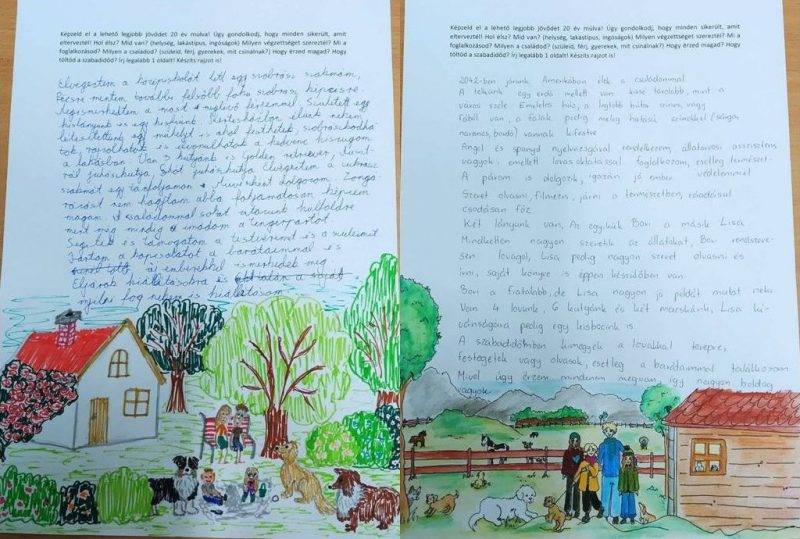 Képzeld el a lehető legjobb jövődet 20 év múlva! Úgy gondolkodj, hogy minden sikerült, amit
elterveztél! Hol élsz? Mid van? (helység, lakástípus, ingóságok) Milyen végzettséget szereztél? Mi a
foglalkozásod? Milyen a családod? (szüleid, férj, gyerekek, mit csinálnak?) Hogy érzed magad? Hogy
töltöd a szabadidőd? Írj legalább 1 oldalt! Készíts rajzot is!
Elvégeztem a középiskolát lett egy szobrász szakmám,
Pécsre mentem tovább felsőbb fokú szobrász képzésre.
Megismerkedtem a most meglévő férjemmel. Született egy
kislányunk és egy kisfiunk. Kertesházban élünk nekem
létesítettünk egy műhelyt is ahol festhetek, szobrászkodha-
tok, rajzolhatok és elvonulhatok a kedvenc kiszugom
a lakásban. Van 3 kutyánk is Golden retriever, Auszt-
rál juhászkutya, Skót juhászkutya. Elvégeztem a cukrász
szakmát egy tanfolyamon. dolgozom. Zongo-
rázást nem hagytam abba folyamatosan képzem
magam. A családommal sokat utazunk külföldre
mint még mindig imádom a tengerpartot.
Segítek és támogatom a testvéremet és a szüleimet
Tartom a kapcsolatot a barátaimmal és
új emberekkel ismerkedek meg.
Eljárok kiállításokra és
nyílni fog nekem is kiállításom.
Képzeld el a lehető legjobb jövődet 20 év múlva! Úgy gondolkodj, hogy minden sikerült, amit
elterveztél! Hol élsz? Mid van? (helység, lakástípus, ingóságok) Milyen végzettséget szereztél? Mi a
foglalkozásod? Milyen a családod? (szüleid, férj, gyerekek, mit csinálnak?) Hogy érzed magad? Hogy
töltöd a szabadidőd? Írj legalább 1 oldalt! Készíts rajzot is!
2042-ben járunk Amerikában élek a családommal
A telkünk egy erdő mellett van kissé távolabb, mint a
város széle Emeletes ház, a legtöbb bútor színes, vagy
fából van, a falak pedig meleg hatású színekkel (sárga,
narancs, bordó) vannak kifestve
Angol és spanyol nyelvvizsgával rendelkezem, állatorvosi asszisztens
vagyok, emellett lovas oktatással foglalkozom, esetleg természet-
A párom is dolgozik, igazán jó ember védelemmel
Szeret olvasni, filmezni, járni a természetben, ráadásul
csodásan főz
Két lányunk van, Az egyikük Bori a másik Lisa
Mindketten nagyon szeretik az állatokat, Bori rendszere-
sen lovagol, Lisa pedig nagyon szeret olvasni és
írni, saját könyve is éppen készülőben van
Bori a fiatalabb, de Lisa nagyon jó példát mutat neki
Van 4 lovunk, 6 kutyánk és két macskánk, Lisa kí-
vánságára pedig egy kisbocink is
A szabadidőmben kimegyek a lovakkal terepre,
festegetek vagy olvasok, esetleg a barátaimmal találkozom
Mivel úgy érzem mindenem megvan, így nagyon boldog
vagyok